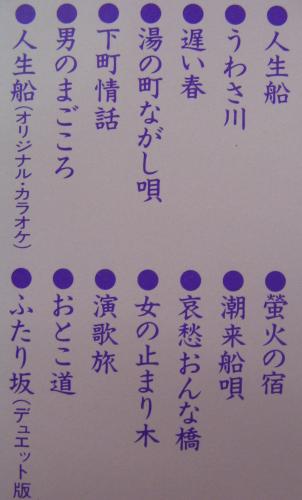 ●人生船
●うわさ川
●遅い春
●湯の町ながし唄
●下町情話
●男のまごころ
●人生船(オリジナル・カラオケ)
●螢火の宿
●潮来船唄
●哀愁おんな橋
●女の止まり木
●演歌旅
●おとこ道
●ふたり坂(デュエット版